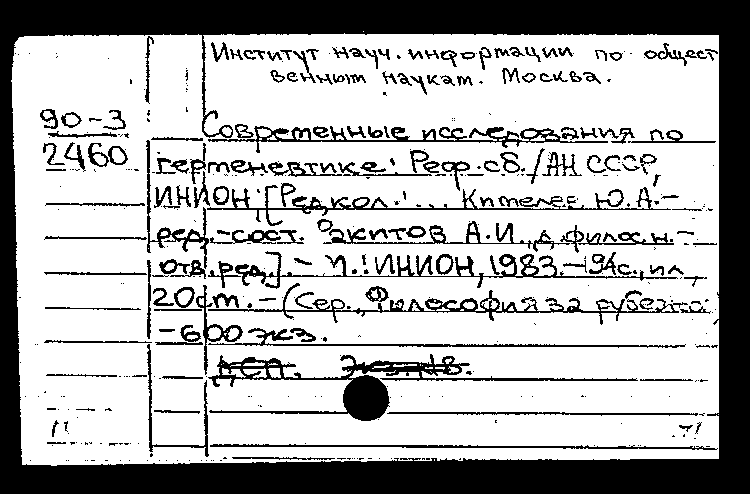 Институт науч. информации по общест
венным наукам. Москва.
90-3
2460
Современные исследования по
герменевтике: Реф. сб. / АН СССР,
ИНИОН; [Редкол.: ... Кимелев Ю.А. -
ред.-сост. Ракитов А.И., д. филос. н. -
отв. ред.]. - М.: ИНИОН, 1983. - 194 с., ил,
20 см. - (Сер. „Философия за рубежом
- 600 экз.
ДСП. Экз.